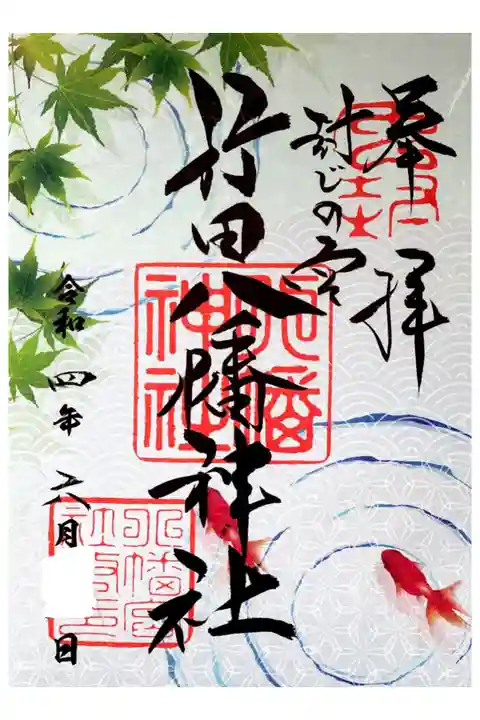 奉拝
封じの宮
行田八幡神社
令和四年六月 日
八幡神社